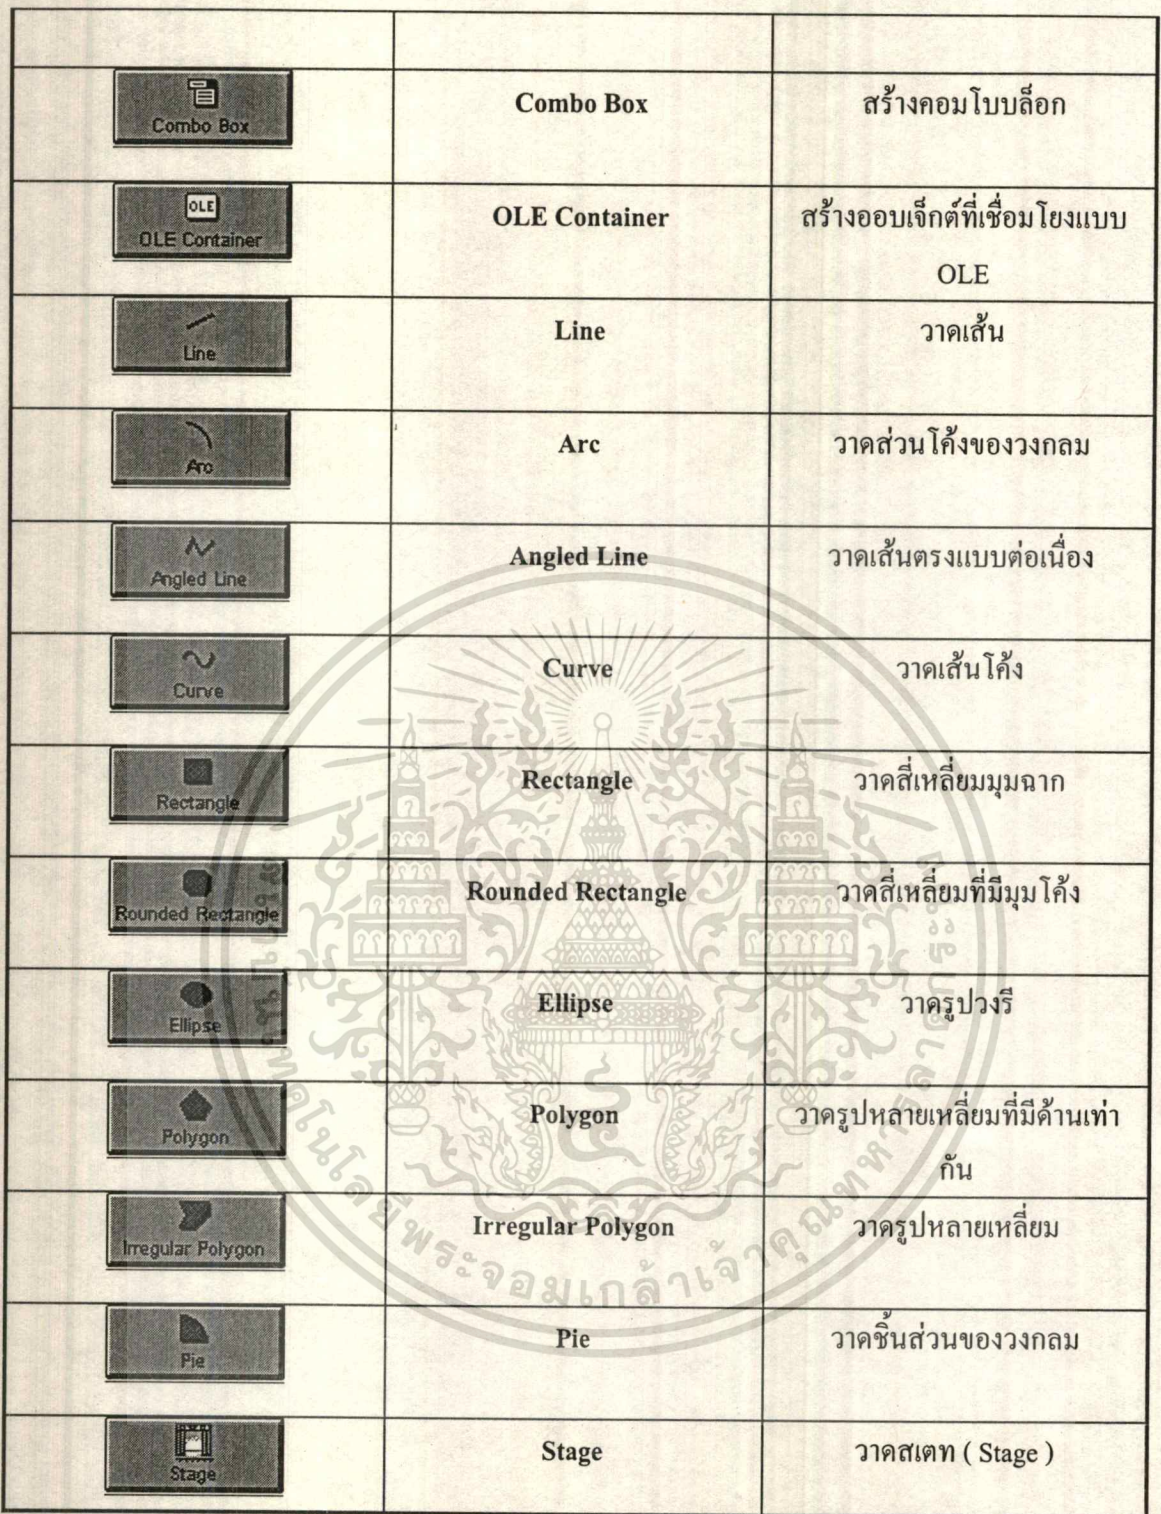 Combo Box
Combo Box
สร้างคอมโบบล็อก
OLE
OLE Container
OLE Container
สร้างออบเจ็กต์ที่เชื่อมโยงแบบ
OLE
Line
Line
วาดเส้น
Arc
Arc
วาดส่วนโค้งของวงกลม
Angled Line
Angled Line
วาดเส้นตรงแบบต่อเนื่อง
Curve
Curve
วาดเส้นโค้ง
Rectangle
Rectangle
วาดสี่เหลี่ยมมุมฉาก
Rounded Rectangle
Rounded Rectangle
วาดสี่เหลี่ยมที่มีมุมโค้ง
Ellipse
Ellipse
วาดรูปวงรี
Polygon
Polygon
วาดรูปหลายเหลี่ยมที่มีด้านเท่า
กัน
Irregular Polygon
Irregular Polygon
วาดรูปหลายเหลี่ยม
Pie
Pie
วาดชิ้นส่วนของวงกลม
Stage
Stage
วาดสเตท ( Stage )
พระจอมเกล้าเจ้าคุณทหารลาดกระบัง